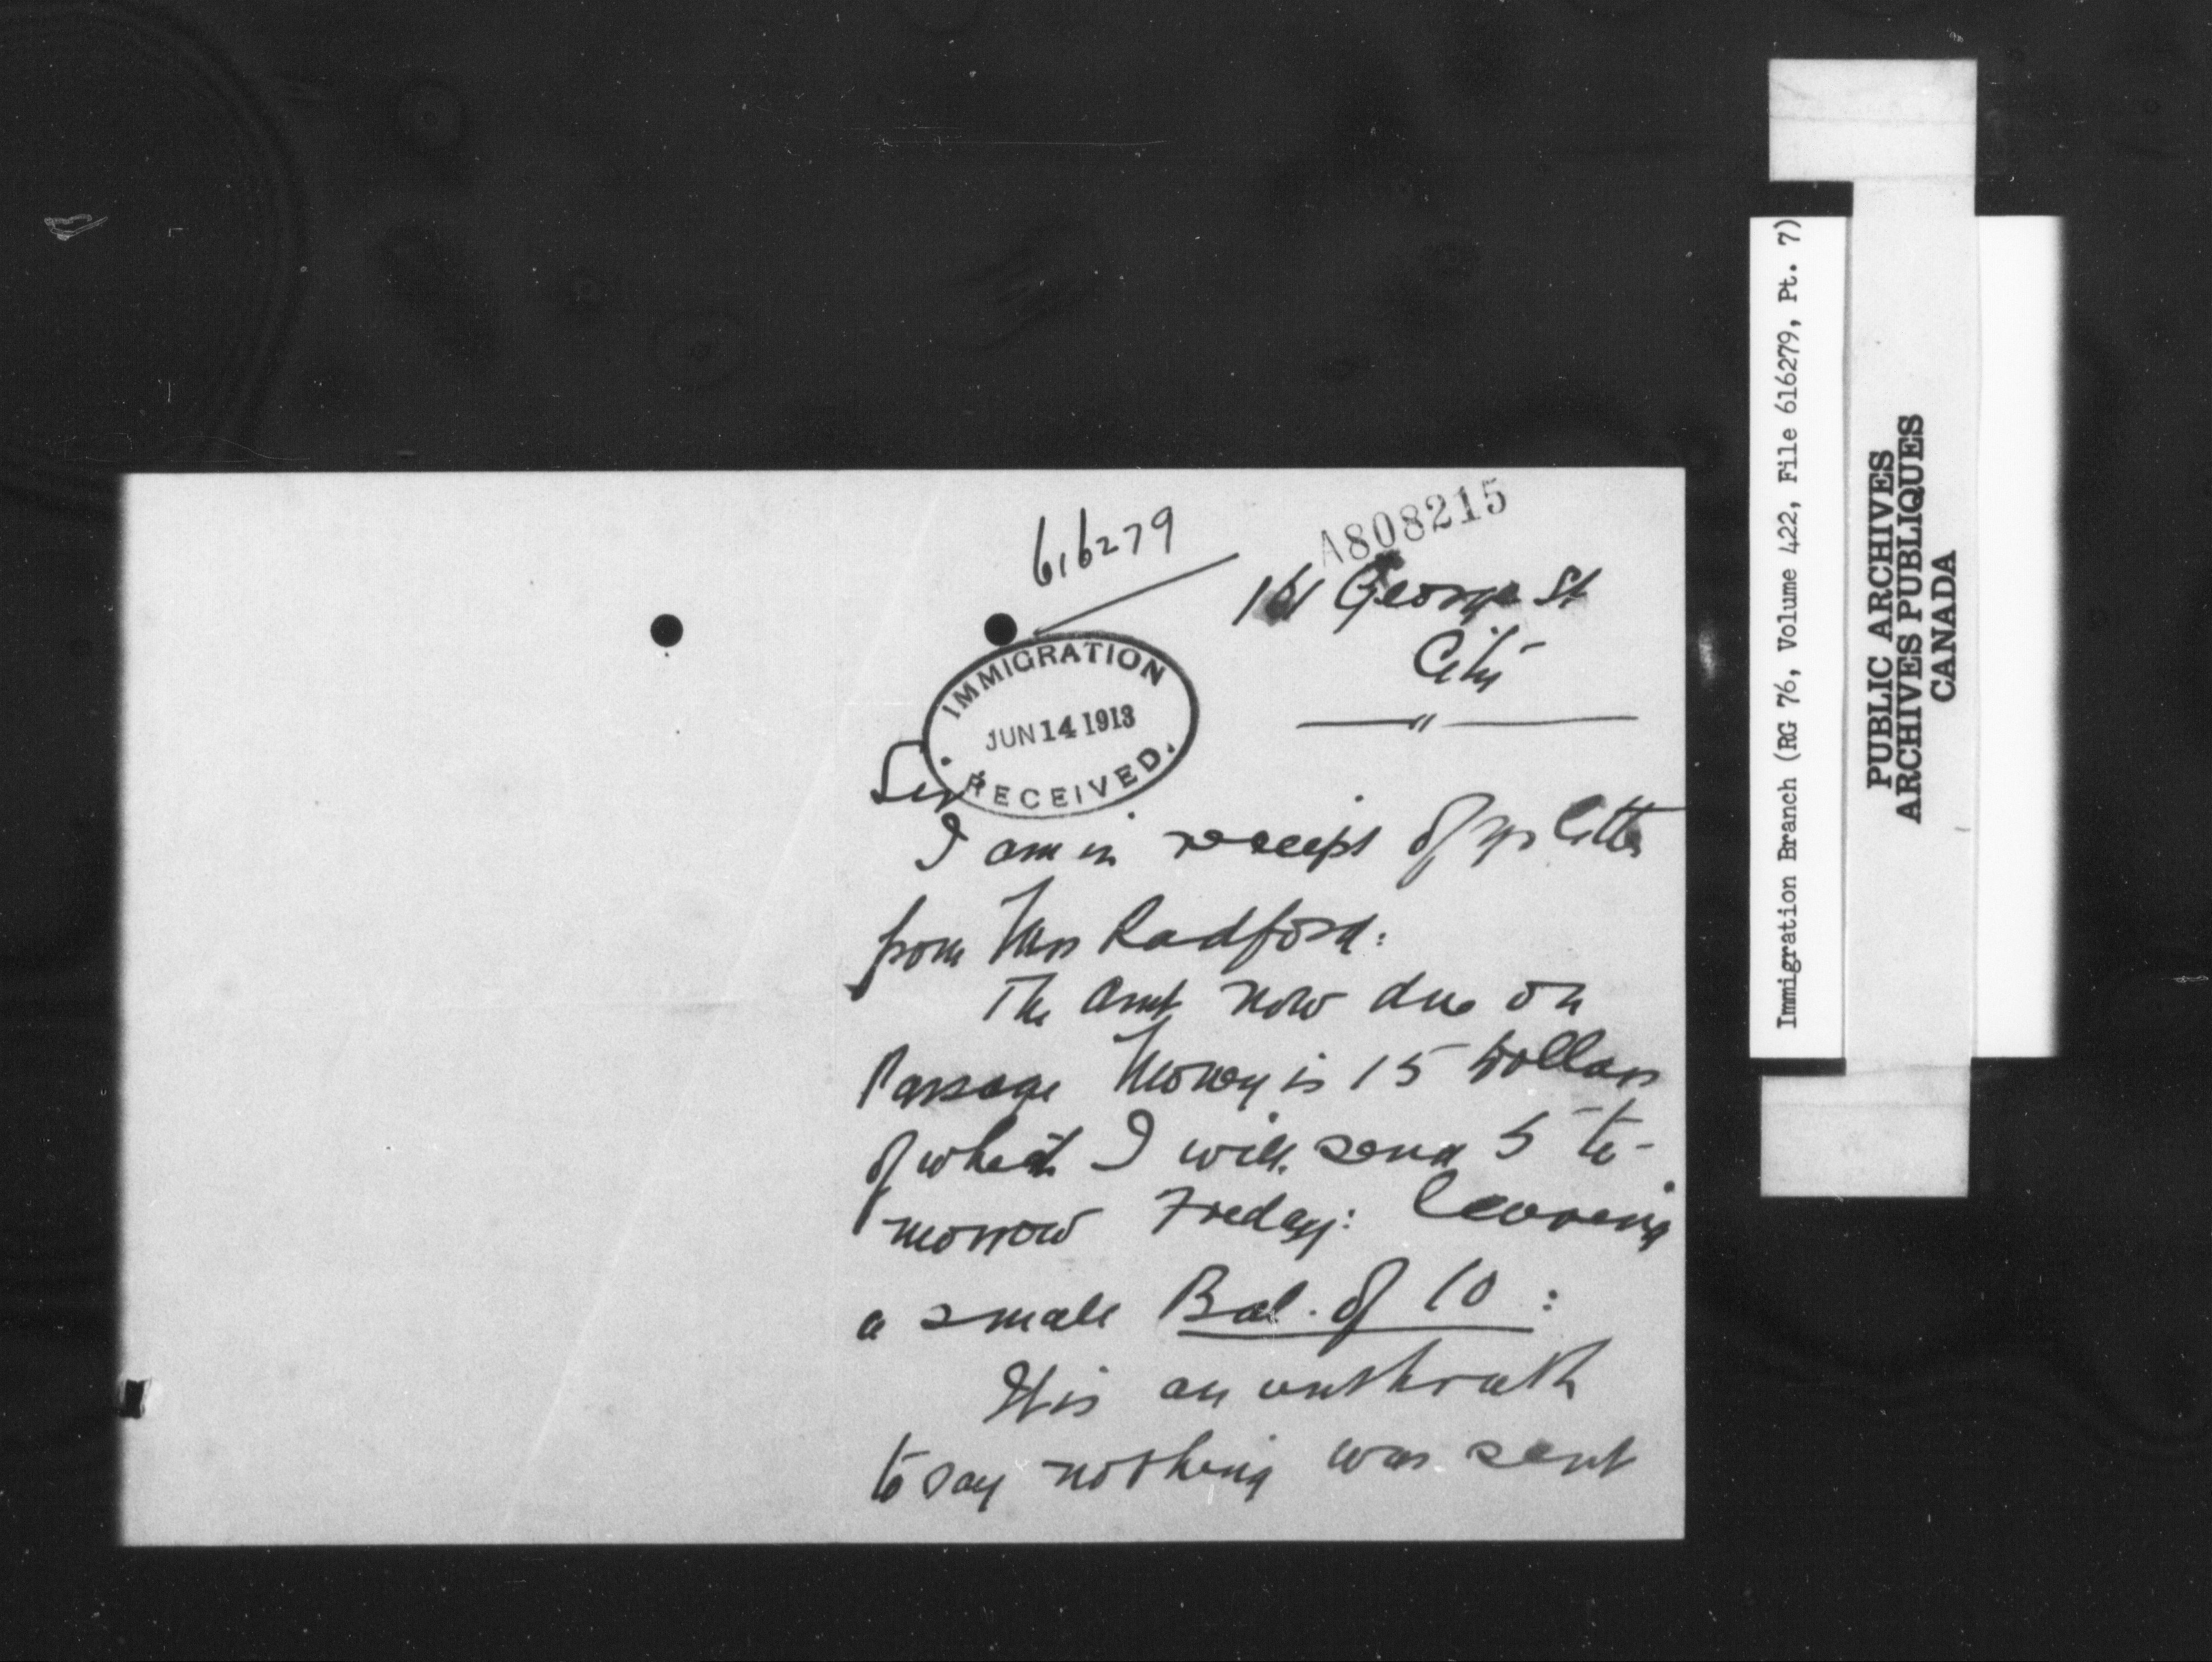 616279
A808215
161 George St
City
IMMIGRATION
JUN 14 1913
RECEIVED.
Sir
I am in receipt of yr letter
from Mrs Radford:
The Amt now due on
Passage Money is 15 Dollars
of which I will send 5 to-
morrow Friday: leaving
a small Bal. of 10:
It is an untruth
to say nothing was sent
Immigration Branch (RG 76, Volume 422, File 616279, Pt. 7)
PUBLIC ARCHIVES
ARCHIVES PUBLIQUES
CANADA